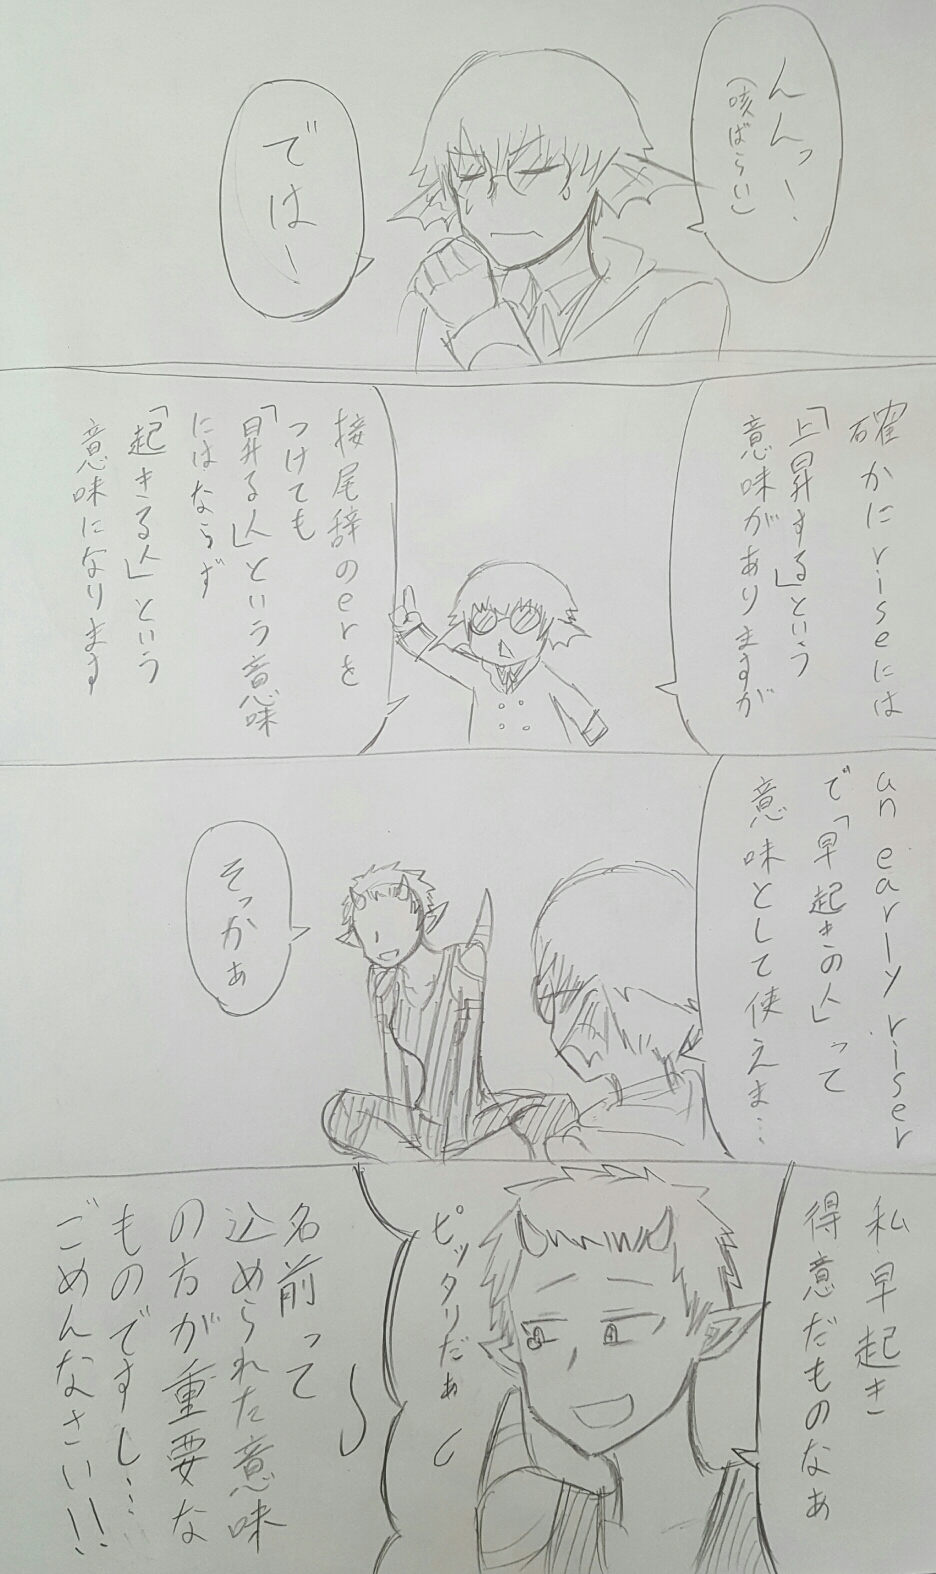 んんっ！
（咳ばらい）
では！
確かにriseには
「上昇する」という
意味がありますが
接尾辞のerを
つけても
「昇る人」という意味
にはならず
「起きる人」という
意味になります
an early riser
で「早起きの人」って
意味として使えま…
そっかぁ
私早起き
得意だものなぁ
ピッタリだぁ
名前って
込められた意味
の方が重要な
ものですし…
ごめんなさい!!